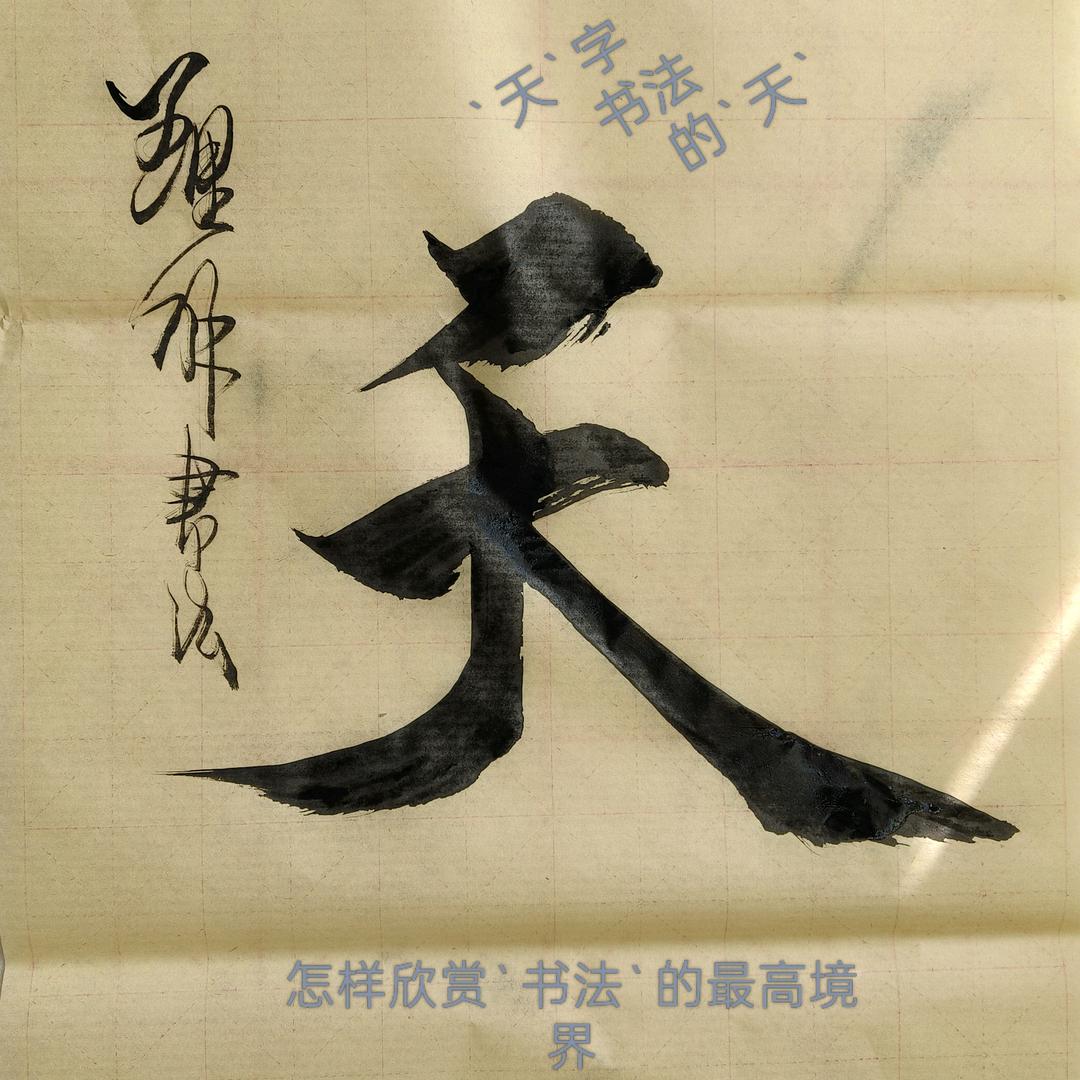 `天`字
书法
的`天`
天
書法
怎样欣赏`书法`的最高境
界